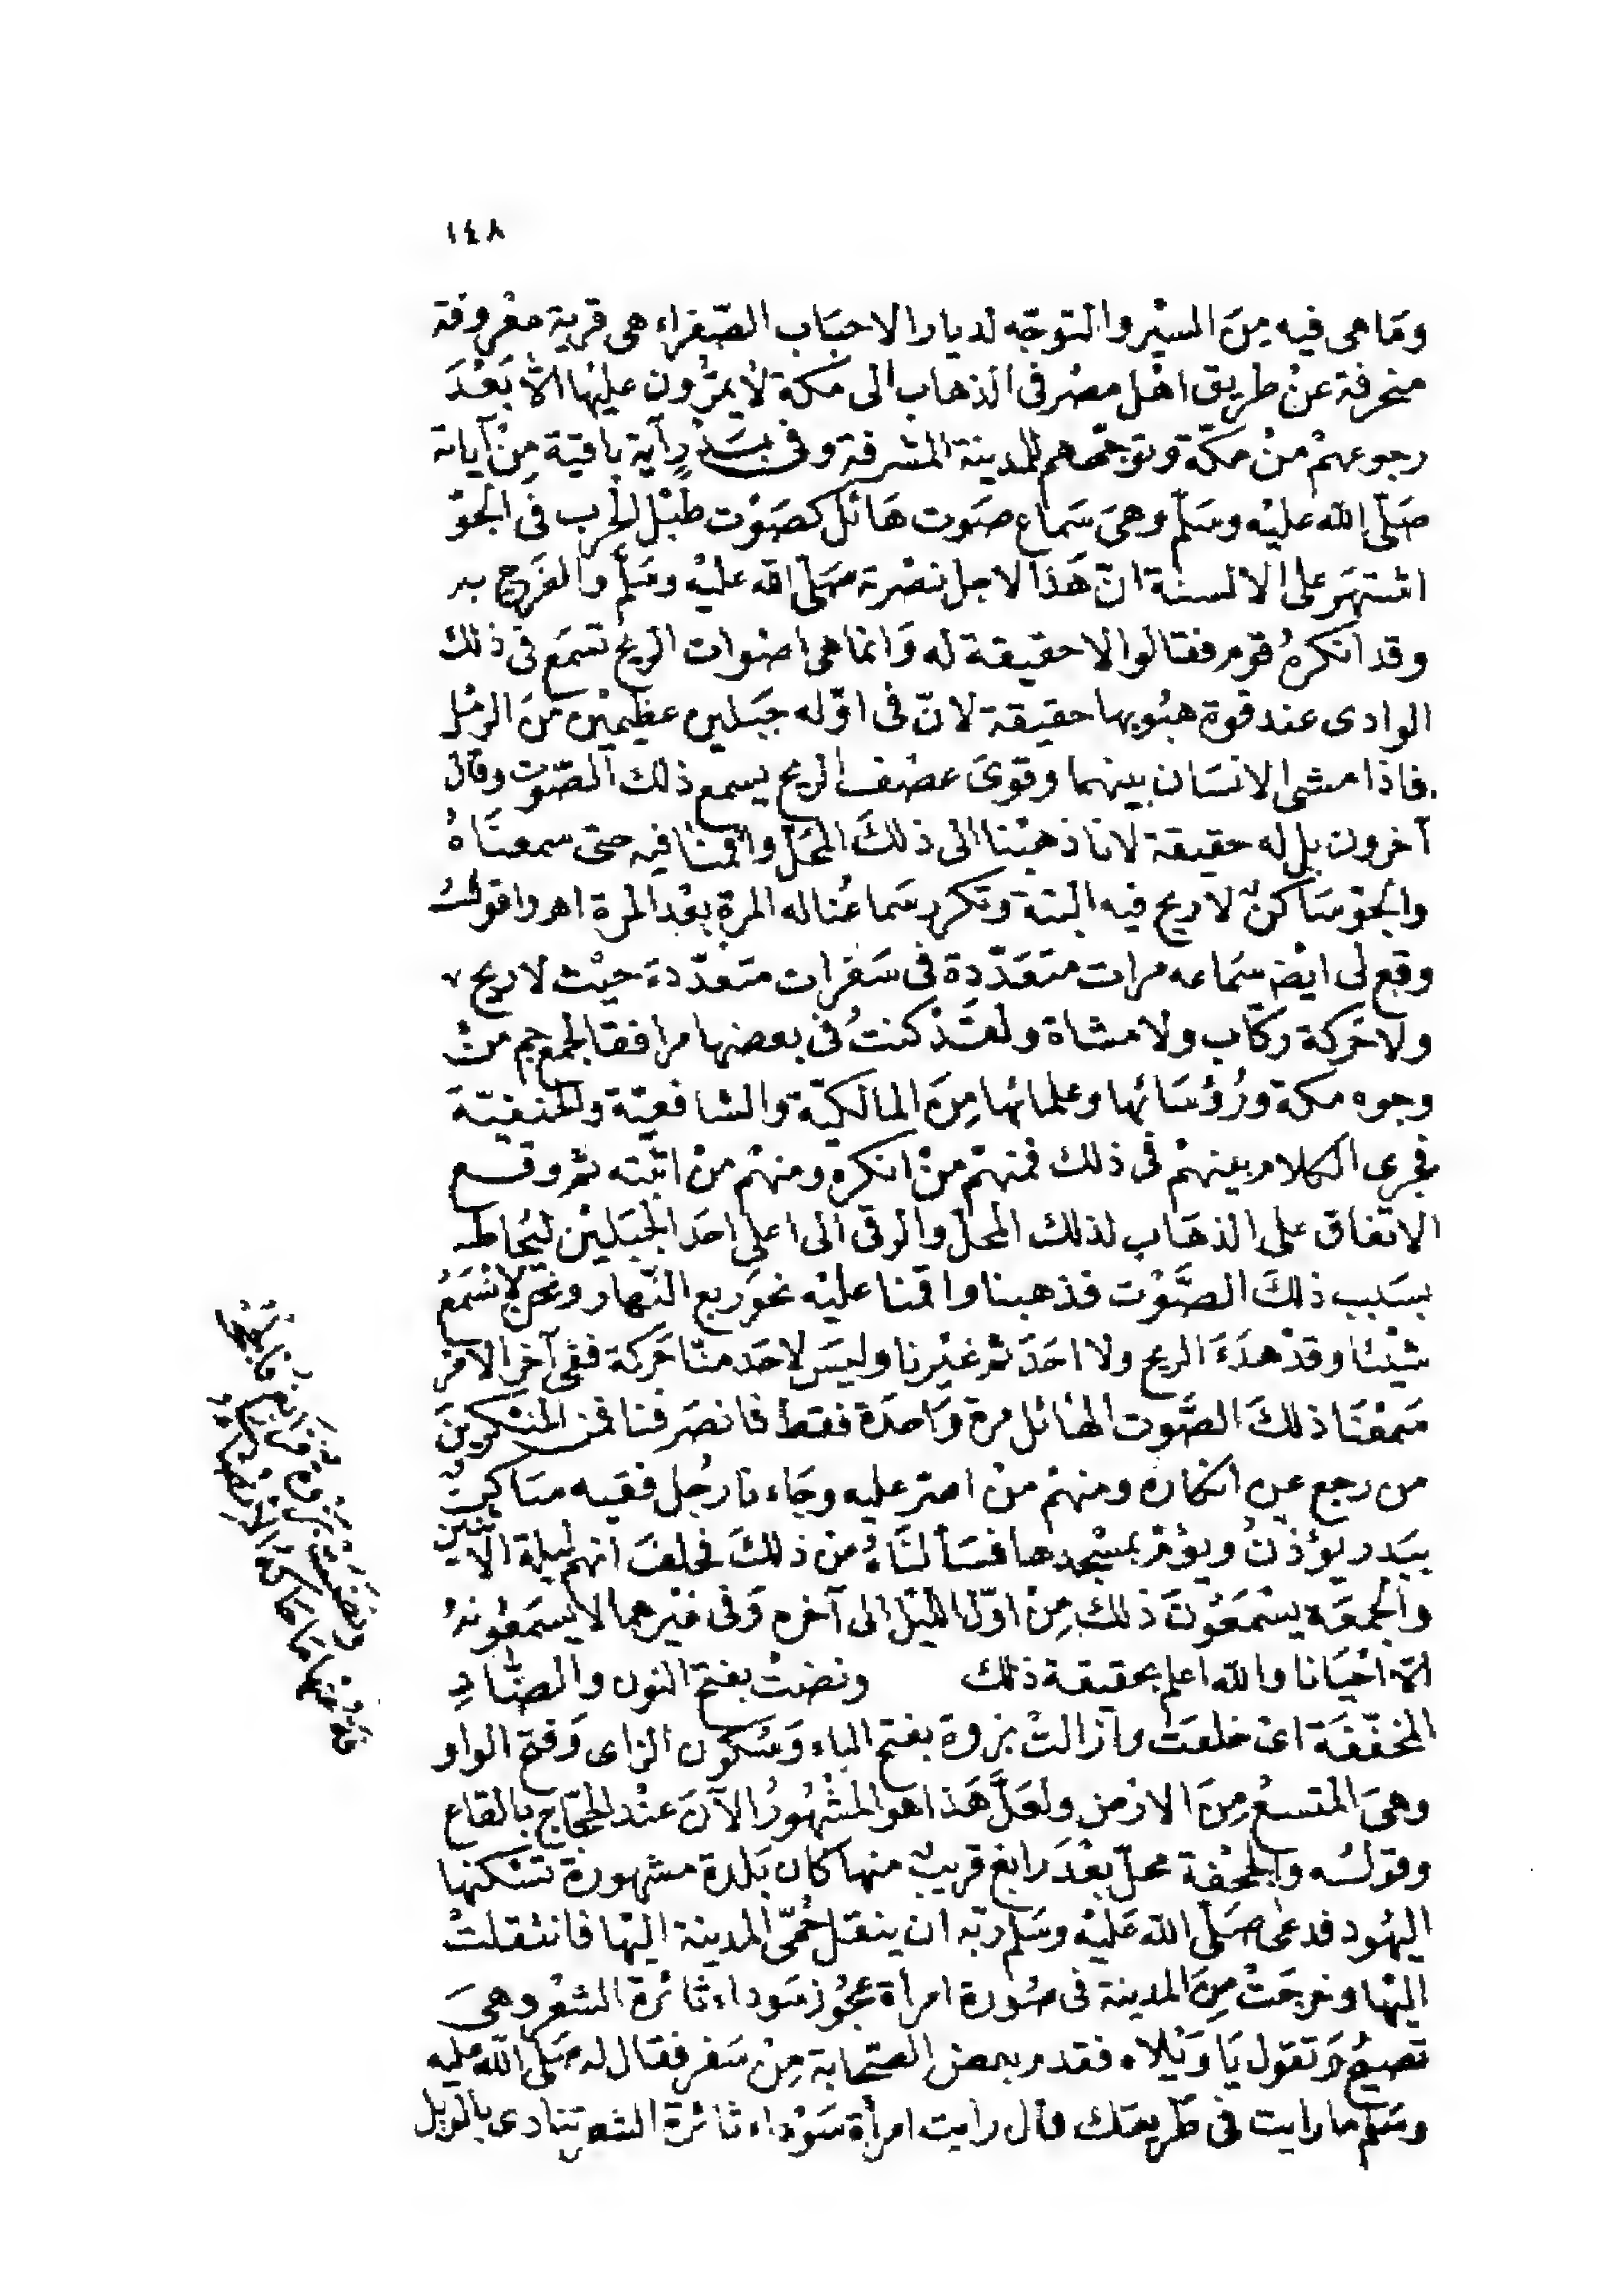 ١٤٨
وَمَا هى فيه مِنَ المسيْر والتوجّه لديار الاحبَاب الصّفراء هى قرية معْروفة
منحرفة عنْ طريق اهْل مصْر فى الذهاب الى مكة لا يمرُّون عليْها الاّ بَعْدَ
رجوعهمْ منْ مكّة وتوجّههم للمدينة المشرفة وفى بَدْرٍ آية باقية مِنْ آياته
صَلّى الله عليْه وسَلّم وهىَ سَماع صَوت هَائل كصَوْت طبْل الحرب فى الجوّ
اشتهَر على الالسنة انّ هَذا لاجل نصْرته صَلّى الله عليْه وسَلّم والفَرح به
وقد انكرهُ قوم فقالوا لا حقيقة له وَانما هى اصْوات الريح تسمَع فى ذلك
الوادى عند قوة هبُوبها حقيقة لانّ فى اوّله جبَلين عظيميْن منَ الرمْل
فاذا مشى الانسَان بينهما وقوىَ عصْف الريح يسمع ذلك الصّوت وقال
آخرون بل له حقيقة لانا ذهبْنا الى ذلكَ المحَلّ واقمْنا فيه حتى سمعنَاهُ
والجوّ سَاكنٌ لا ريح فيه البتة وتكرر سَماعُنا له المرة بعْد المرة اهـ واقول
وقع لى ايْضا سَماعه مرات متعَدّدة فى سَفرات متعدّدة حيْث لا ريح
ولا حَركة ركاب ولا مشاة ولقدْ كنتُ فى بعضها مرافقا لجمع جم منْ
وجوه مكة ورُؤسَائها وعلمائها مِنَ المالكيّة والشافعيّة والحنفيّة
فجرى الكلام بينهمْ فى ذلك فمنهمْ منْ انكره ومنهمْ منْ اثبته ثم وقع
الاتفاق على الذهَاب لذلك المحلّ والرقى الى اعلى احَد الجبَليْن ليُحَاط
بسَبب ذلكَ الصَّوْت فذهبنا واقمنا عليْه نحوَ ربع النّهار ونحن لا نسْمَعُ
شيْئا وقدْ هدَءَ الريح ولا احَدَ ثم غيْرنا وليسَ لاحَد منّا حَركة ففى آخر الامْر
سَمعْنَا ذلكَ الصَّوت الهَائل مرة وَاحدَة فقط فانصَرفنا فمن المنكرينَ
من رجع عن انكاره ومنهمْ منْ اصَرّ عليه وجَاءنا رجُل فقيه سَاكنٌ
ببَدر يؤذنُ ويؤمّ بمسْجدها فسَألنَاهُ منْ ذلكَ فحلفَ انهم ليلة الاثنين
والجمعَة يسْمَعُونَ ذلكَ مِنْ اوّل الليْل الى آخره وَفى غيْرهما لا يسمَعُونهُ
الاّ احْيَانا والله اعلم بحقيقة ذلك ونضتْ بفتح النون والضّادِ
المخفّفَة اىْ خلعَت وازالتْ بزوة بفتح الباء وَسُكون الزاى وَفتح الواو
وهىَ المتسعُ مِنَ الارْض ولعَلَّ هَذا هو المشْهُورُ الآنَ عنْد الحجّاج بالقاع
وقولُه والجحْفة محلّ بعْدَ رابغ قريبٌ منها كان بَلدة مشهورة تسْكنها
اليهُود فدعى صَلّى الله عَليْه وسَلم ربّه ان ينقل حُمّى المدينة اليْها فانتقلتْ
اليْها وخرجَتْ مِنَ المدينة فى صُورة امرأة عجُوز سَوداء ثائرة الشعْر وهىَ
تصيحُ وَتقول يَا وَيْلاه فقدم بعض الصّحابة مِنْ سَفر فقال له صَلّى الله عليه
وسَلّم ما رايت فى طريقك قال رايت امرأة سَوْداء ثائرة الشعر تنادى بالويل